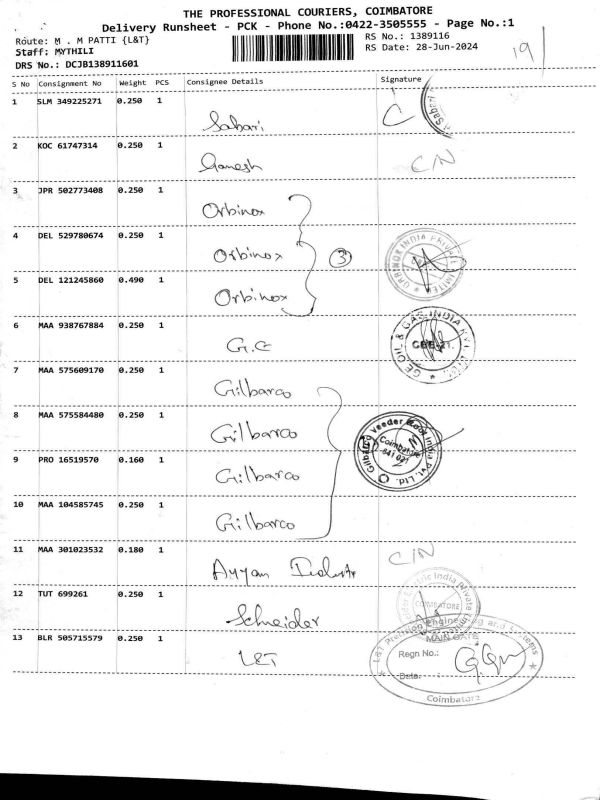 THE PROFESSIONAL COURIERS, COIMBATORE
Delivery Runsheet - PCK - Phone No.:0422-3505555 - Page No.:1
Route: M . M PATTI {L&T}
RS No.: 1389116
Staff: MYTHILI
RS Date: 28-Jun-2024
DRS No.: DCJB138911601
19
S No Consignment No Weight PCS Consignee Details Signature
1 SLM 349225271 0.250 1 Sabari C Sabari
2 KOC 61747314 0.250 1 Ganesh C/N
3 JPR 502773408 0.250 1 Orbinox
4 DEL 529780674 0.250 1 Orbinox 3 ORBINOX INDIA PRIVATE LIMITED
5 DEL 121245860 0.490 1 Orbinox
6 MAA 938767884 0.250 1 G.E GE OIL & GAS INDIA PVT. LTD.
7 MAA 575609170 0.250 1 Gilbarco
8 MAA 575584480 0.250 1 Gilbarco Gilbarco Veeder Root India Pvt. Ltd. Coimbatore 641 021
9 PRO 16519570 0.160 1 Gilbarco
10 MAA 104585745 0.250 1 Gilbarco
11 MAA 301023532 0.180 1 Ayyan C/N
12 TUT 699261 0.250 1 Schneider Electric India Private COIMBATORE
13 BLR 505715579 0.250 1 L&T L&T Precision Engineering and Systems
MAIN GATE
Regn No.:
Date :
Coimbatore